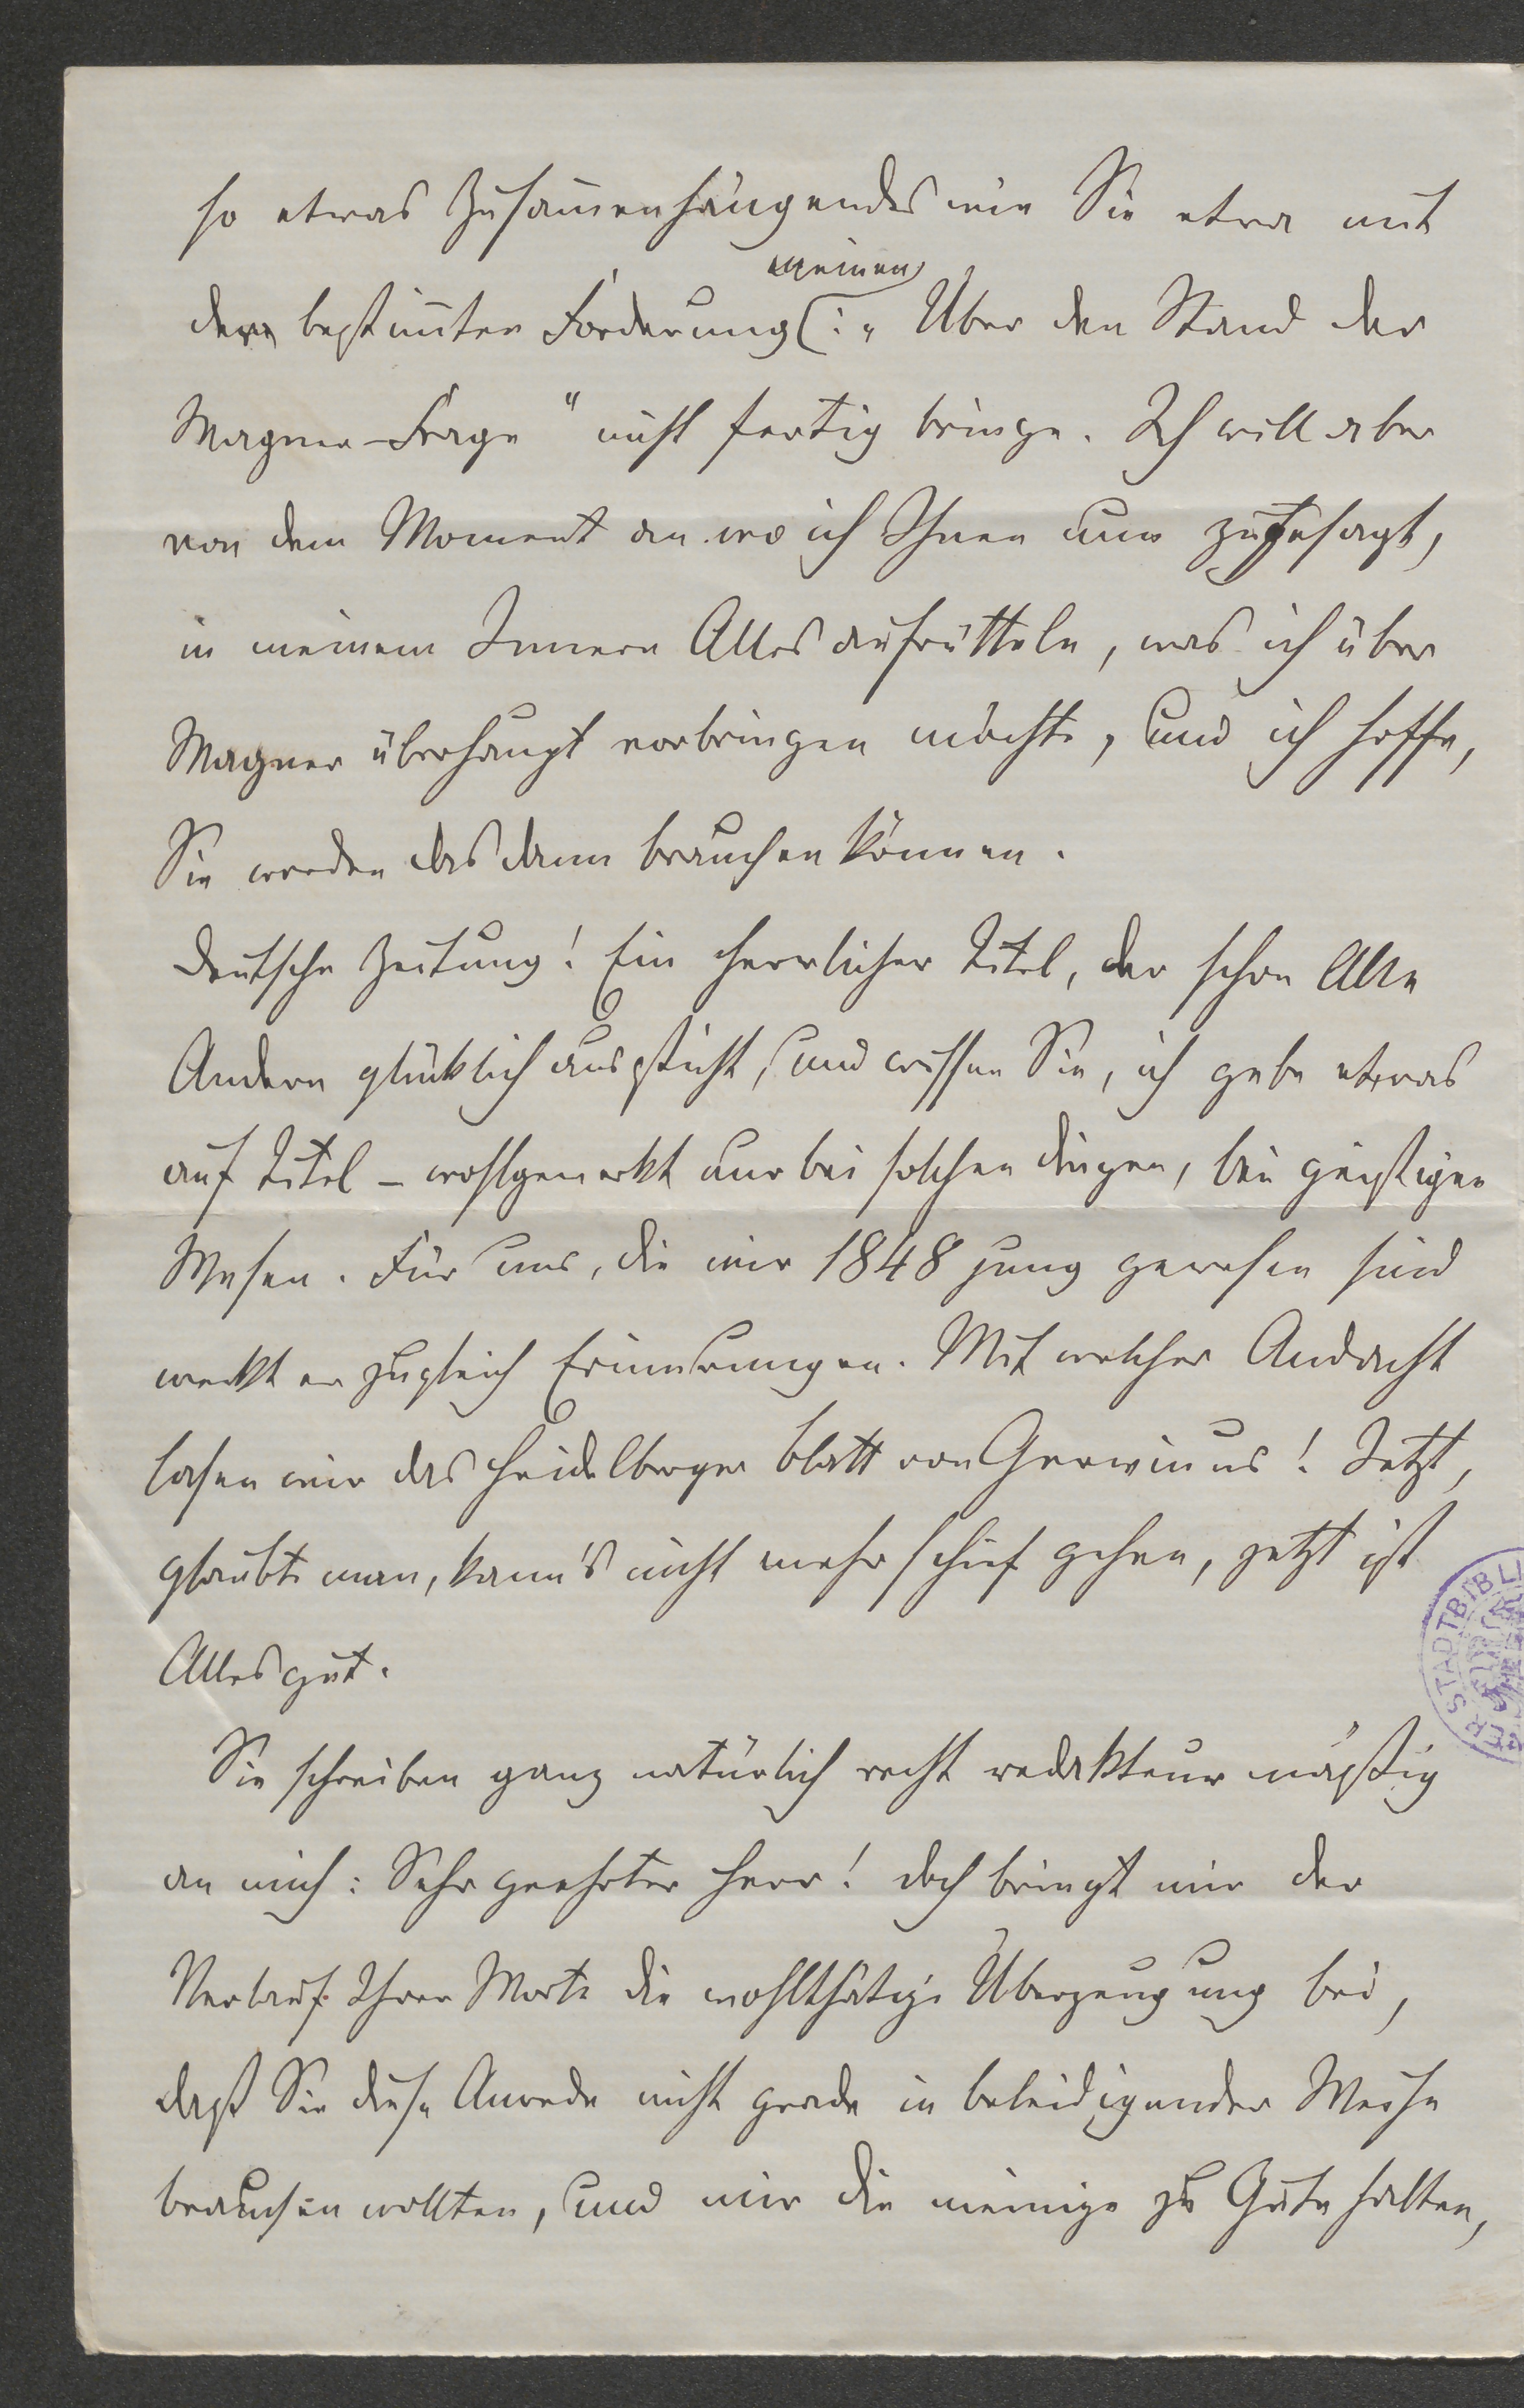 so etwas Zusammenhängendes wie Sie etwa mit
meinen
der bestimmten Forderung : „Über den Stand der
Wagner-Frage“ nicht fertig bringe. Ich will aber
von dem Moment an wo ich Ihnen nun zugesagt,
in meinem Innern Alles aufrütteln, was ich über
Wagner überhaupt vorbringen möchte, und ich hoffe,
Sie werden das dann brauchen können.
Deutsche Zeitung! Ein herrlicher Titel, der schon Alle
Andern glücklich aussticht, und wissen Sie, ich gebe etwas
auf Titel – wohlgemerkt nur bei solchen Dingen, bei geistigen
Wesen. Für uns, die wir 1848 jung gewesen sind
weckt er zugleich Erinnerungen. Mit welcher Andacht
lasen wir das Heidelberger Blatt von Gervinus! Jetzt,
glaubte man, kann's nicht mehr schief gehen, jetzt ist
Alles gut.
Sie schreiben ganz natürlich recht redakteurmäßig
an mich: Sehr geehrter Herr! Doch bringt mir der
Verlauf Ihrer Worte die wohlthätige Überzeugung bei,
daß Sie diese Anrede nicht gerade in beleidigender Weise
brauchen wollten, und mir die meinige zu Gute halten,
STADTBIBLI